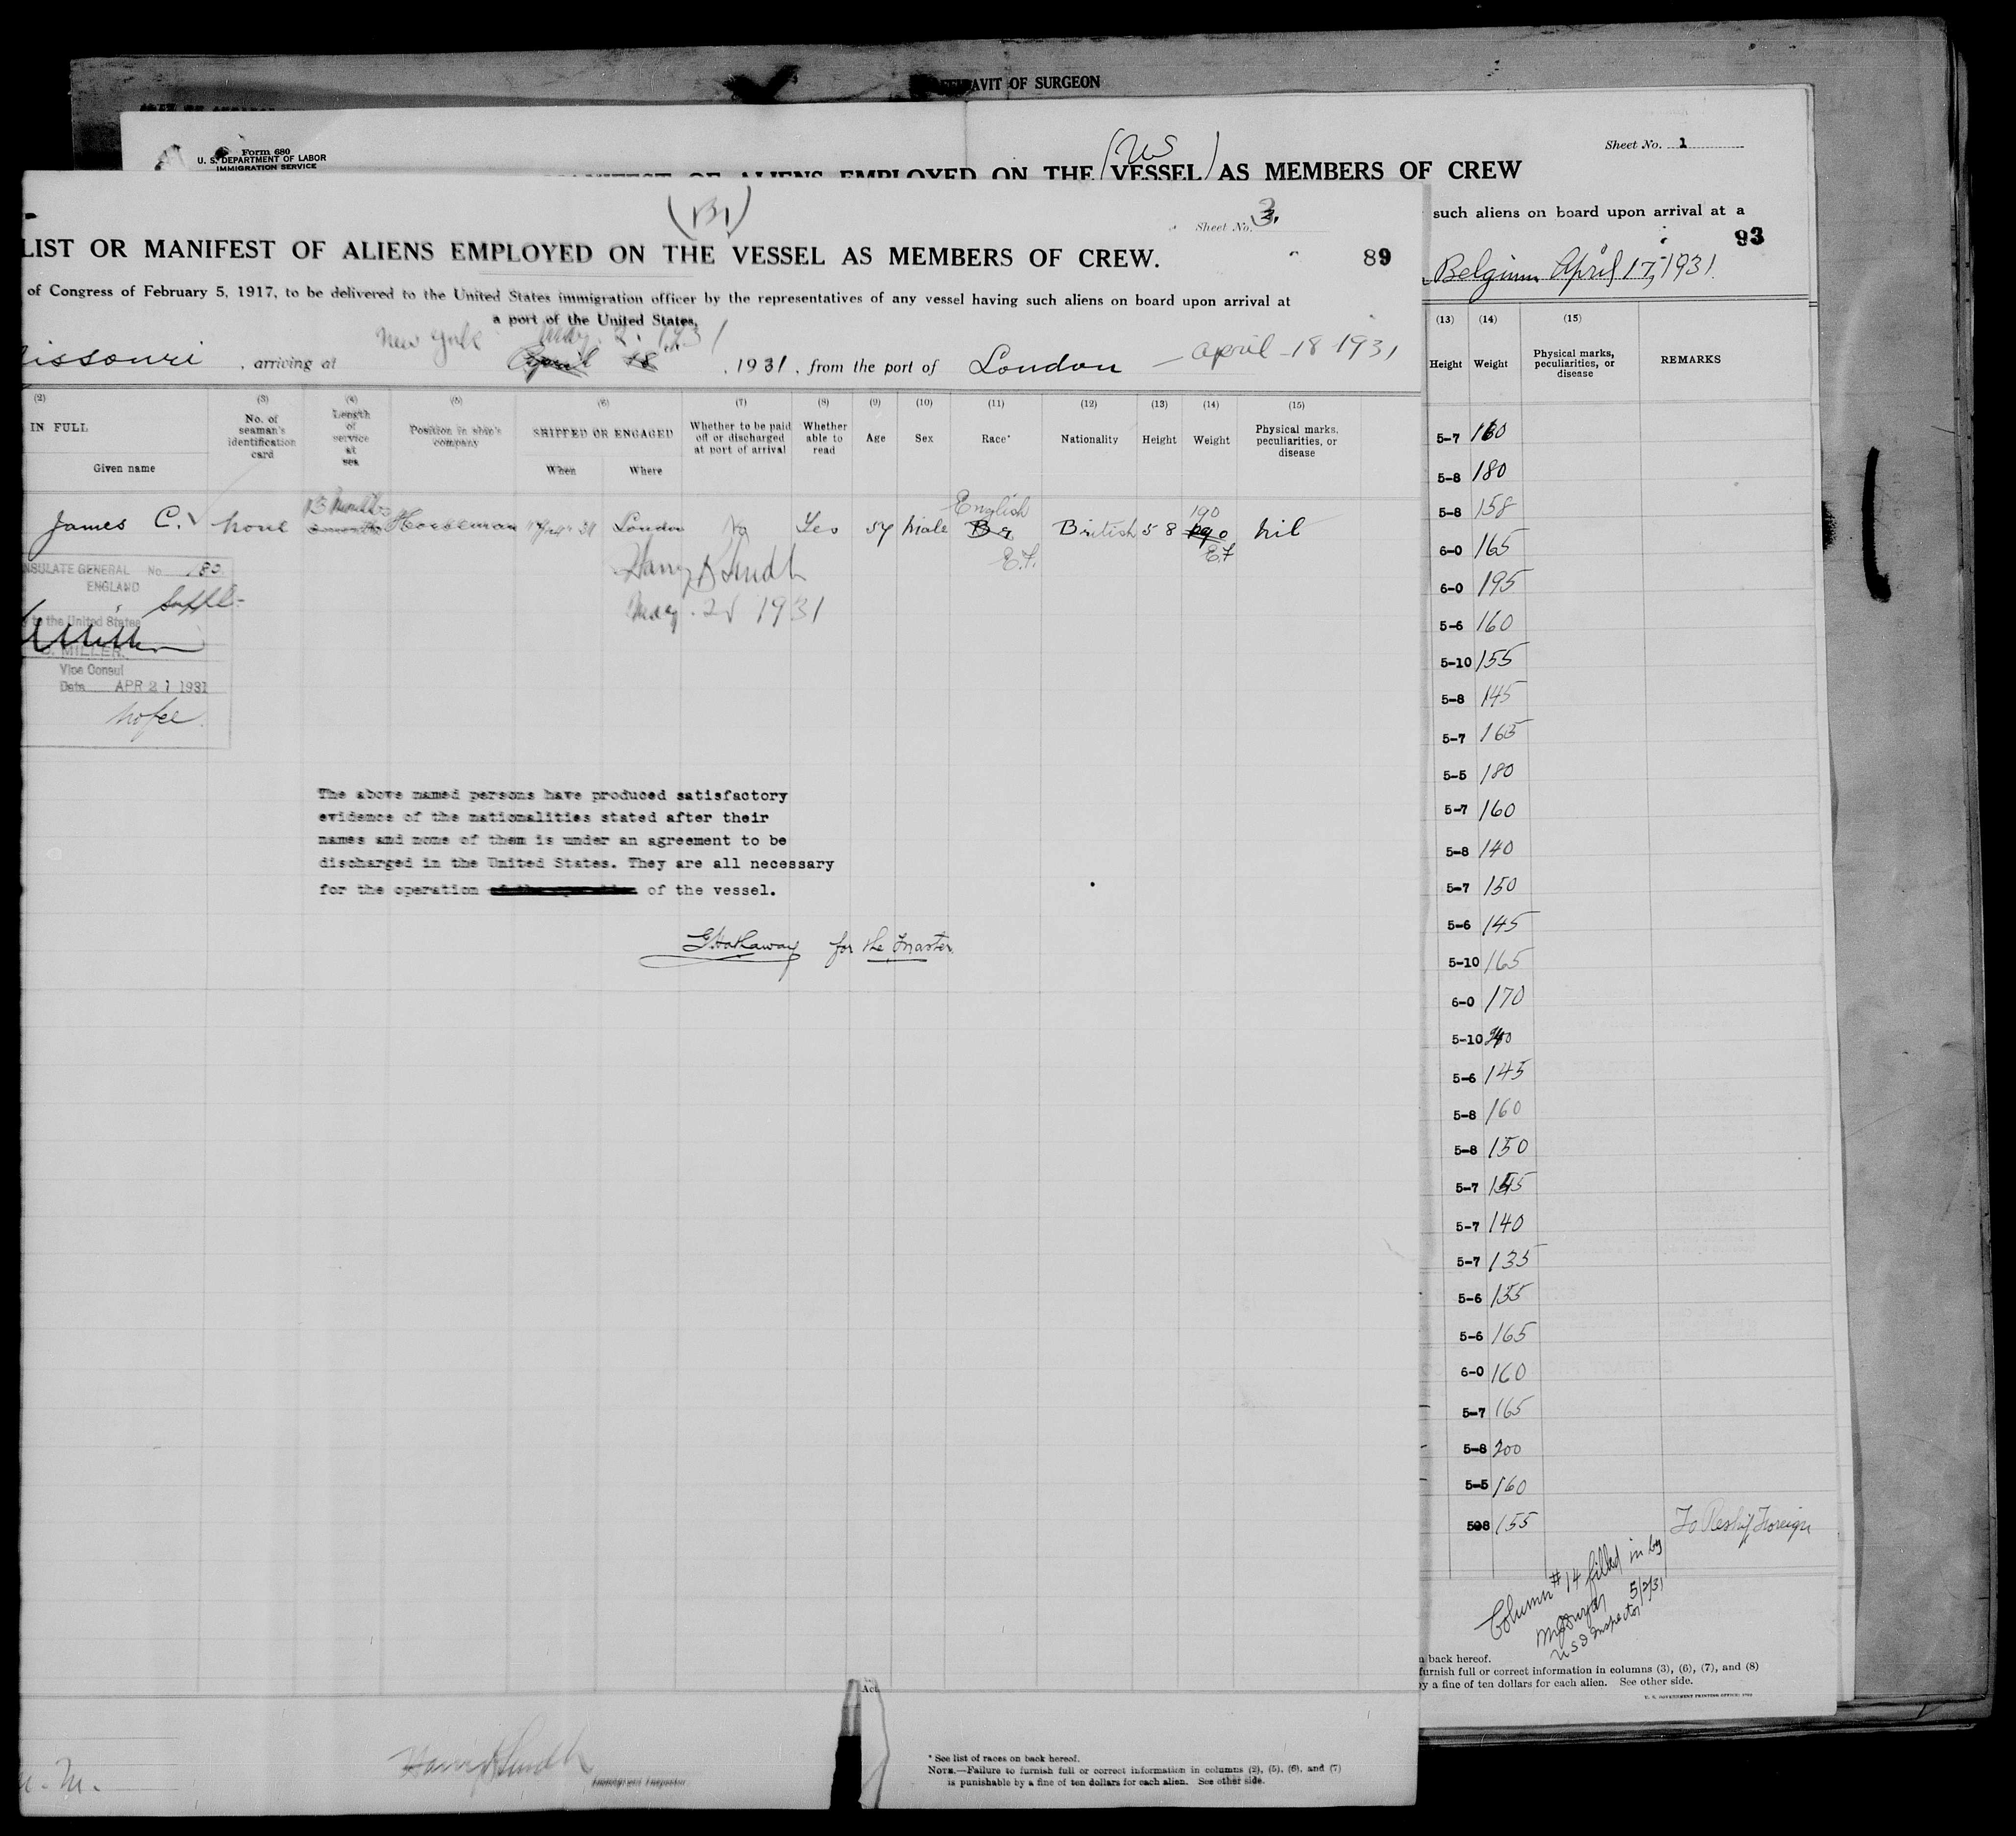 AFFIDAVIT OF SURGEON
Form 680
U. S. DEPARTMENT OF LABOR
IMMIGRATION SERVICE
Sheet No. 1
(US)
MANIFEST OF ALIENS EMPLOYED ON THE VESSEL AS MEMBERS OF CREW
such aliens on board upon arrival at a
93
Belgium April 17, 1931.
(13) (14) (15)
Height Weight Physical marks, peculiarities, or disease REMARKS
5-7 160
5-8 180
5-8 158
6-0 165
6-0 195
5-6 160
5-10 155
5-8 145
5-7 165
5-5 180
5-7 160
5-8 140
5-7 150
5-6 145
5-10 165
6-0 170
5-10
5-6 145
5-8 160
5-8 150
5-7
5-7 140
5-7 135
5-6 155
5-6 165
6-0 160
5-7 165
5-8 200
5-5 160
508 155 To Reship Foreign
Column #14 filled in by
5/2/31
U S I Inspector
n back hereof.
furnish full or correct information in columns (3), (6), (7), and (8)
by a fine of ten dollars for each alien. See other side.
U. S. GOVERNMENT PRINTING OFFICE:
(Br)
Sheet No. 3.
LIST OR MANIFEST OF ALIENS EMPLOYED ON THE VESSEL AS MEMBERS OF CREW.
89
of Congress of February 5, 1917, to be delivered to the United States immigration officer by the representatives of any vessel having such aliens on board upon arrival at
a port of the United States.
New York May. 2. 1931
issouri , arriving at April 18th , 1931 , from the port of London — April - 18 - 1931
(2) (3) (4) (5) (6) (7) (8) (9) (10) (11) (12) (13) (14) (15)
IN FULL
Given name
No. of seaman's identification card
Length of service at sea
Position in ship's company
SHIPPED OR ENGAGED
When Where
Whether to be paid off or discharged at port of arrival
Whether able to read
Age Sex Race* Nationality Height Weight
Physical marks, peculiarities, or disease
13 months English 190
James C. none Horseman London No Yes 54 Male Br British 5 8 190 nil
E.F. E.F
Harry B Smith
May. 2d 1931
NSULATE GENERAL No. 180.
ENGLAND
Suppl-
to the United States
MILLER,
Vice Consul
Date APR 21 1931
No fee.
The above named persons have produced satisfactory
evidence of the nationalities stated after their
names and none of them is under an agreement to be
discharged in the United States. They are all necessary
for the operation of the vessel.
G Hathaway for the Master.
Act
M.
Immigrant Inspector
* See list of races on back hereof.
NOTE.—Failure to furnish full or correct information in columns (2), (5), (6), and (7)
is punishable by a fine of ten dollars for each alien. See other side.